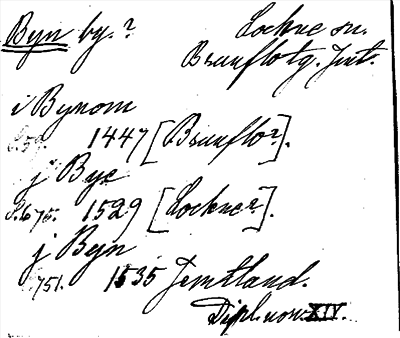 Byn by.? Lockne sn.
Brunflo tg. Jmt.
i Bynom
s. 59. 1447 [Brunflo?].
j Bye
S. 675. 1529 [Lockne?].
j Byn
751. 1535 Jemtland.
Dipl. norv. XIV.